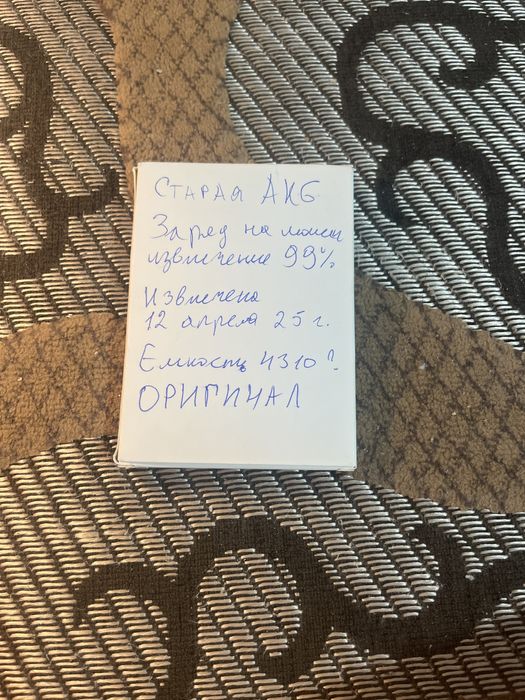 Старая АКБ
Заряд на момент
извлечение 99%
Извлечена
12 апреля 25 г.
Емкость 4310?
ОРИГИНАЛ